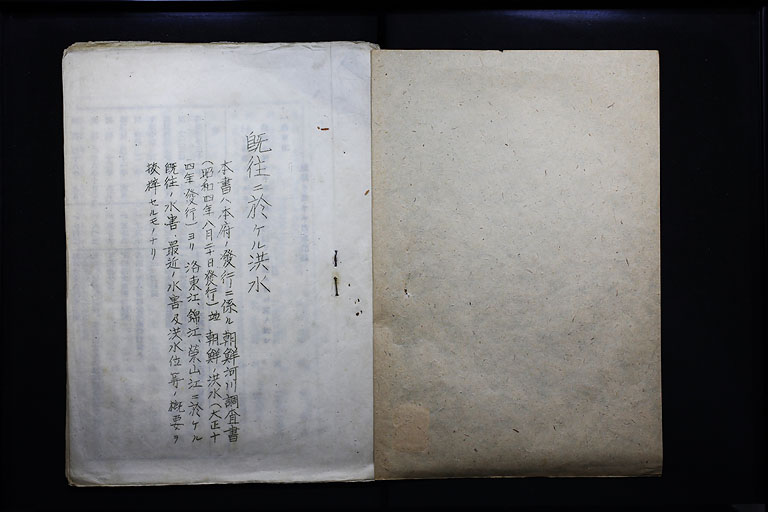 既往ニ於ケル洪水
本書ハ本府ノ發行ニ係ル朝鮮河川調査書
(昭和四年八月二十日發行)地 朝鮮ノ洪水(大正十
四年發行)ヨリ洛東江、錦江、榮山江ニ於ケル
既往ノ水害、最近ノ水害及洪水位等ノ概要ヲ
拔粹セルモノナリ